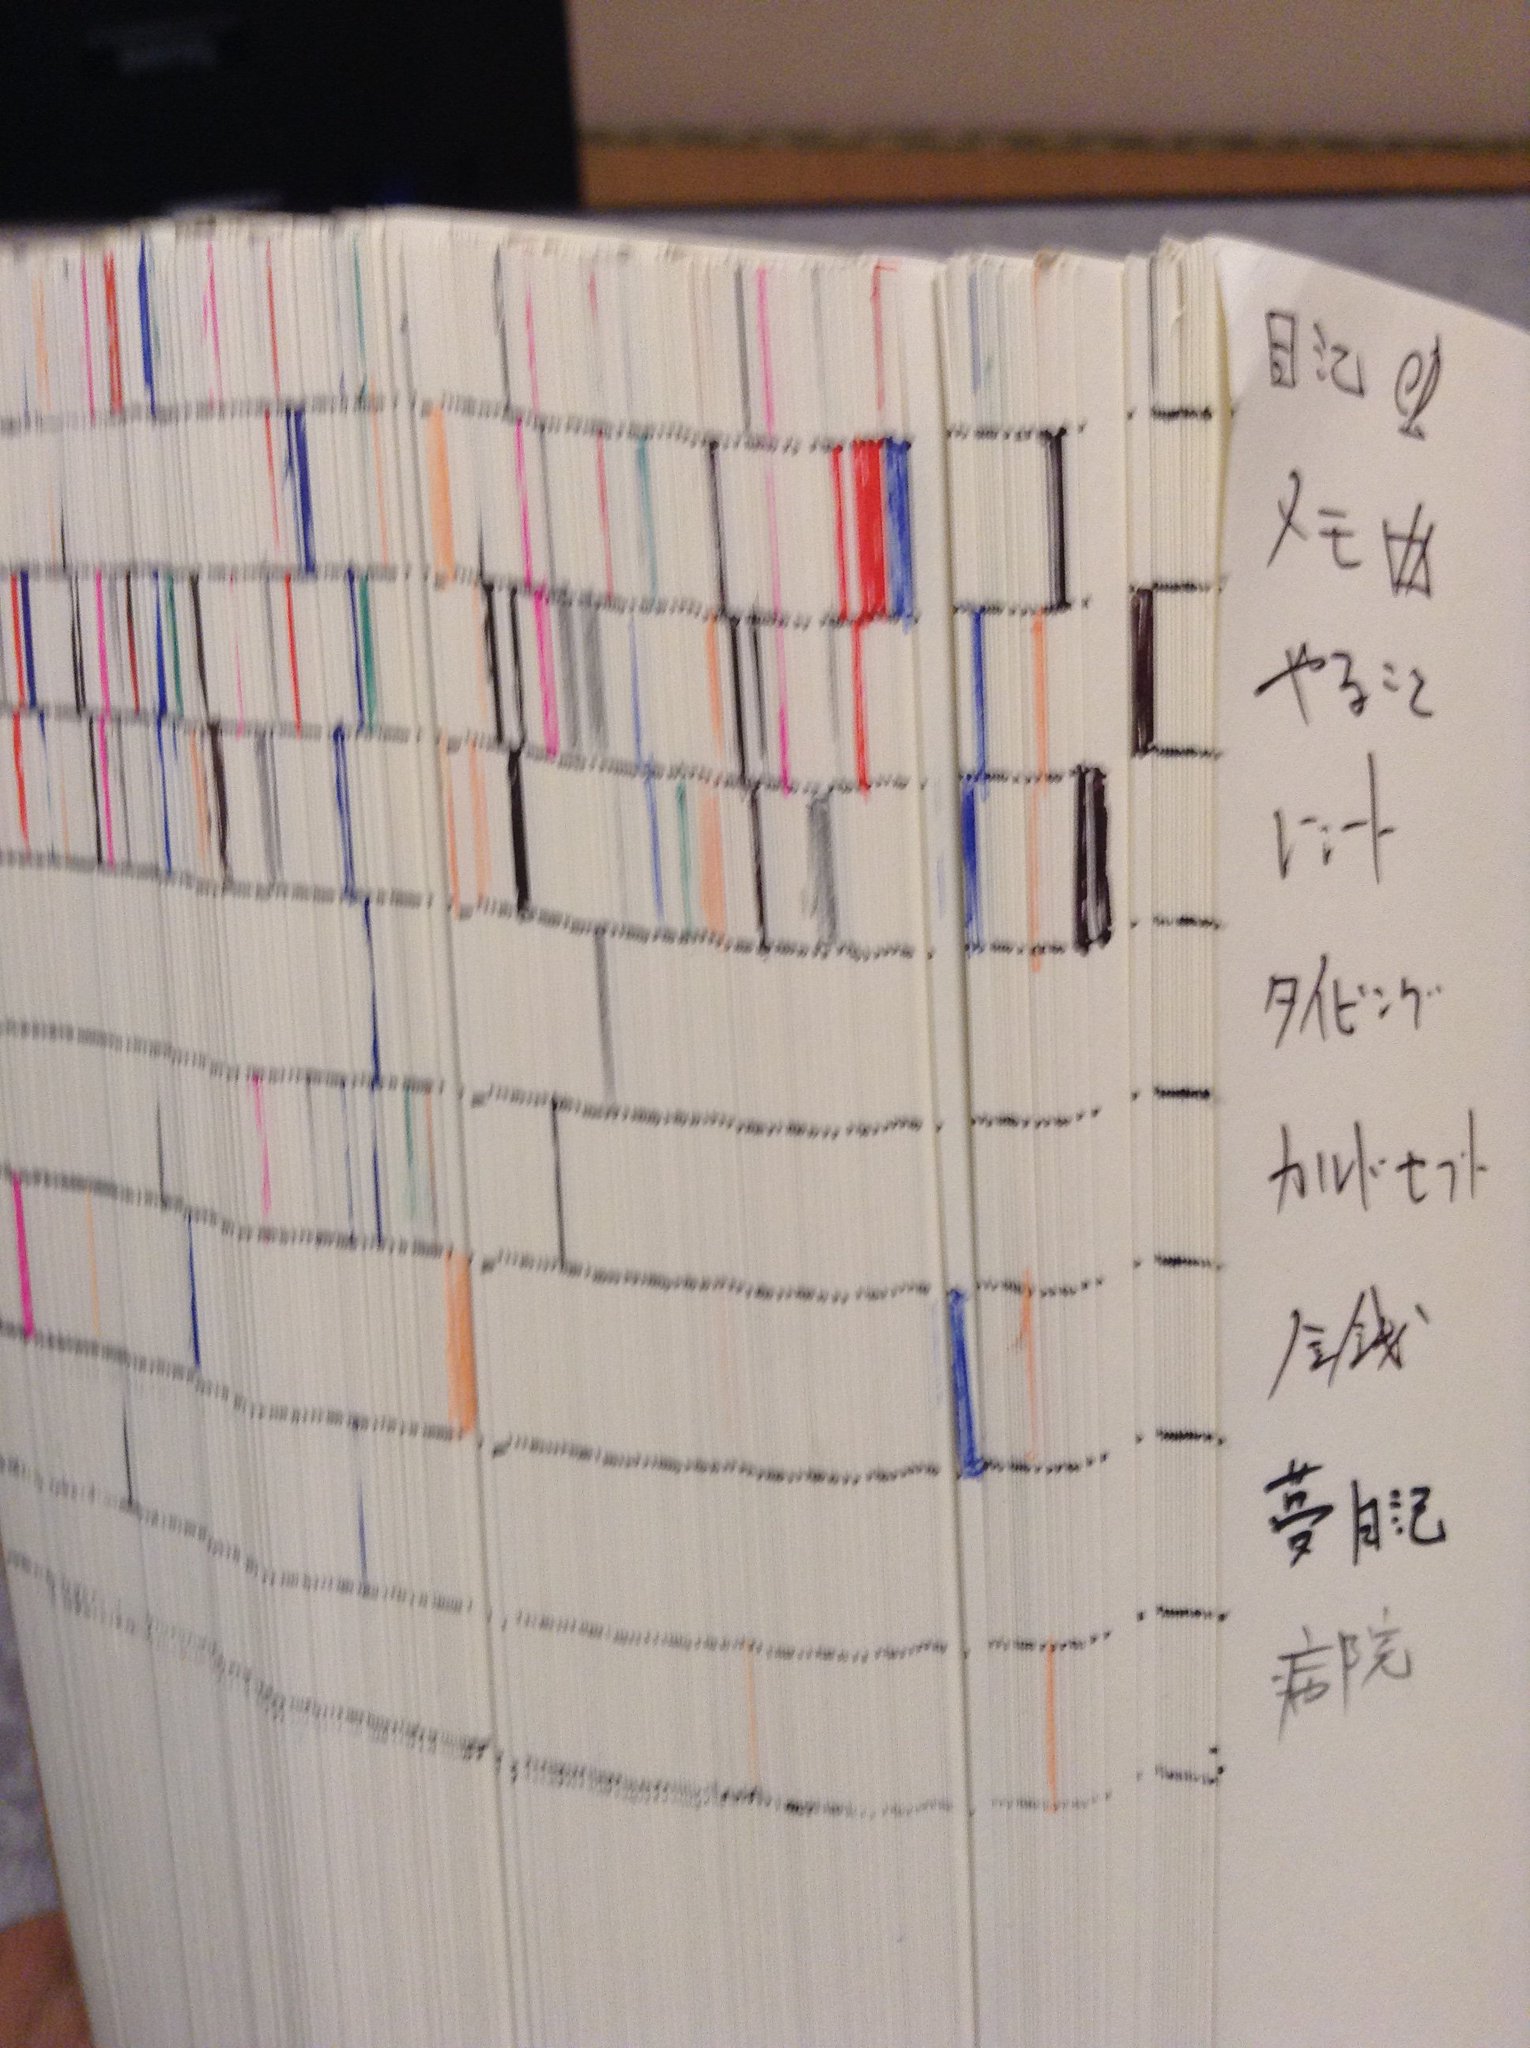 日記
メモ
やること
レシート
タイピング
カルドセプト
金銭
夢日記
病院